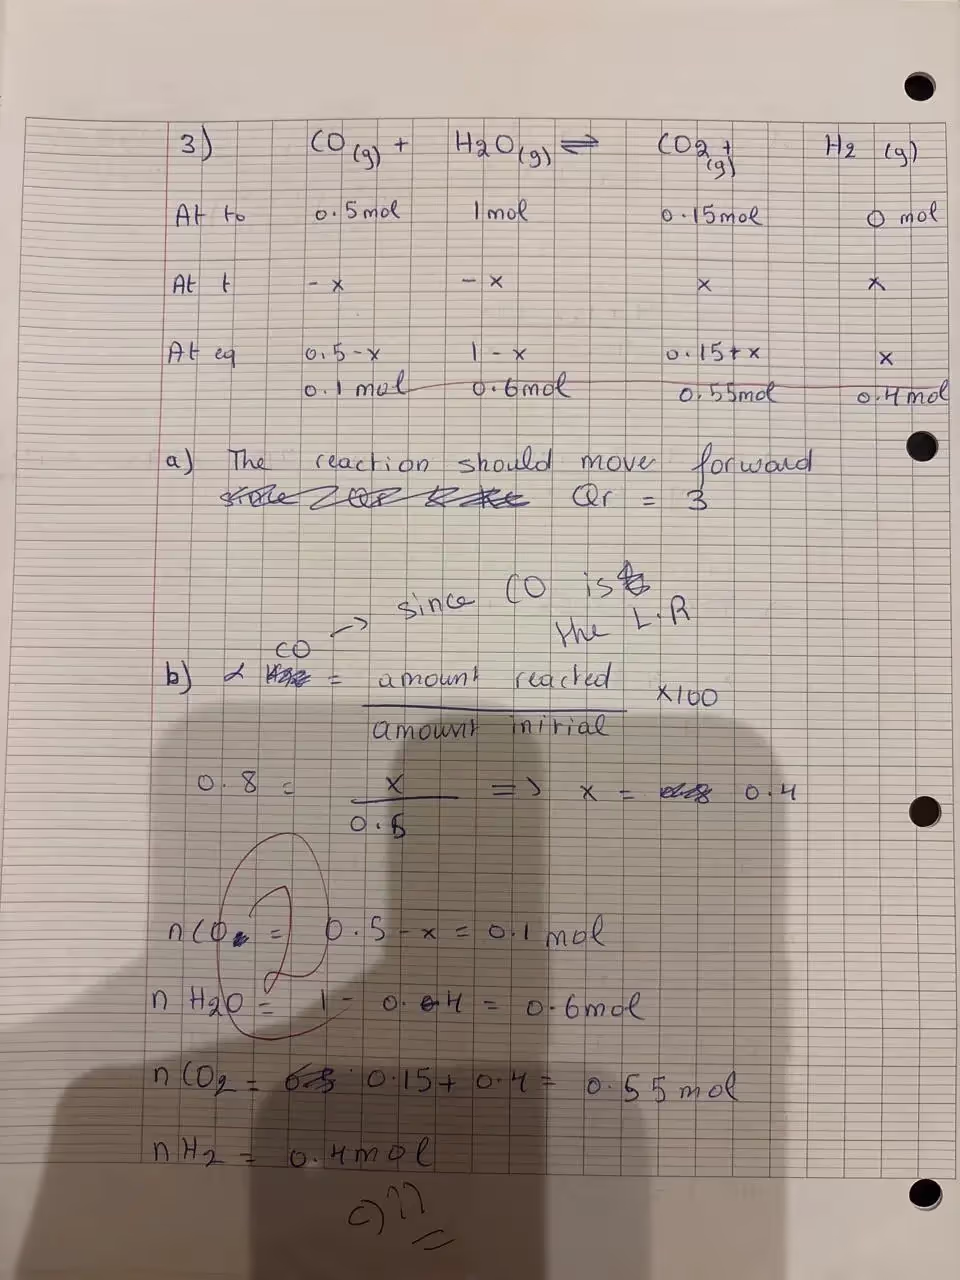 3) CO(g) + H2O(g) ⇌ CO2(g) + H2 (g)
At to 0.5mol 1mol 0.15mol 0 mol
At t - x - x x x
At eq 0.5-x 1 - x 0.15+x x
0.1 mol 0.6mol 0.55mol 0.4mol
a) The reaction should move forward
Qr = 3
→ since CO is
the L.R
CO
b) α = amount reacted ×100
amount initial
0.8 = x => x = 0.4
0.5
nCO = 0.5-x = 0.1 mol
n H2O = 1 - 0.4 = 0.6mol
n CO2 = 0.15+ 0.4 = 0.55mol
n H2 = 0.4mol
2
c) ??